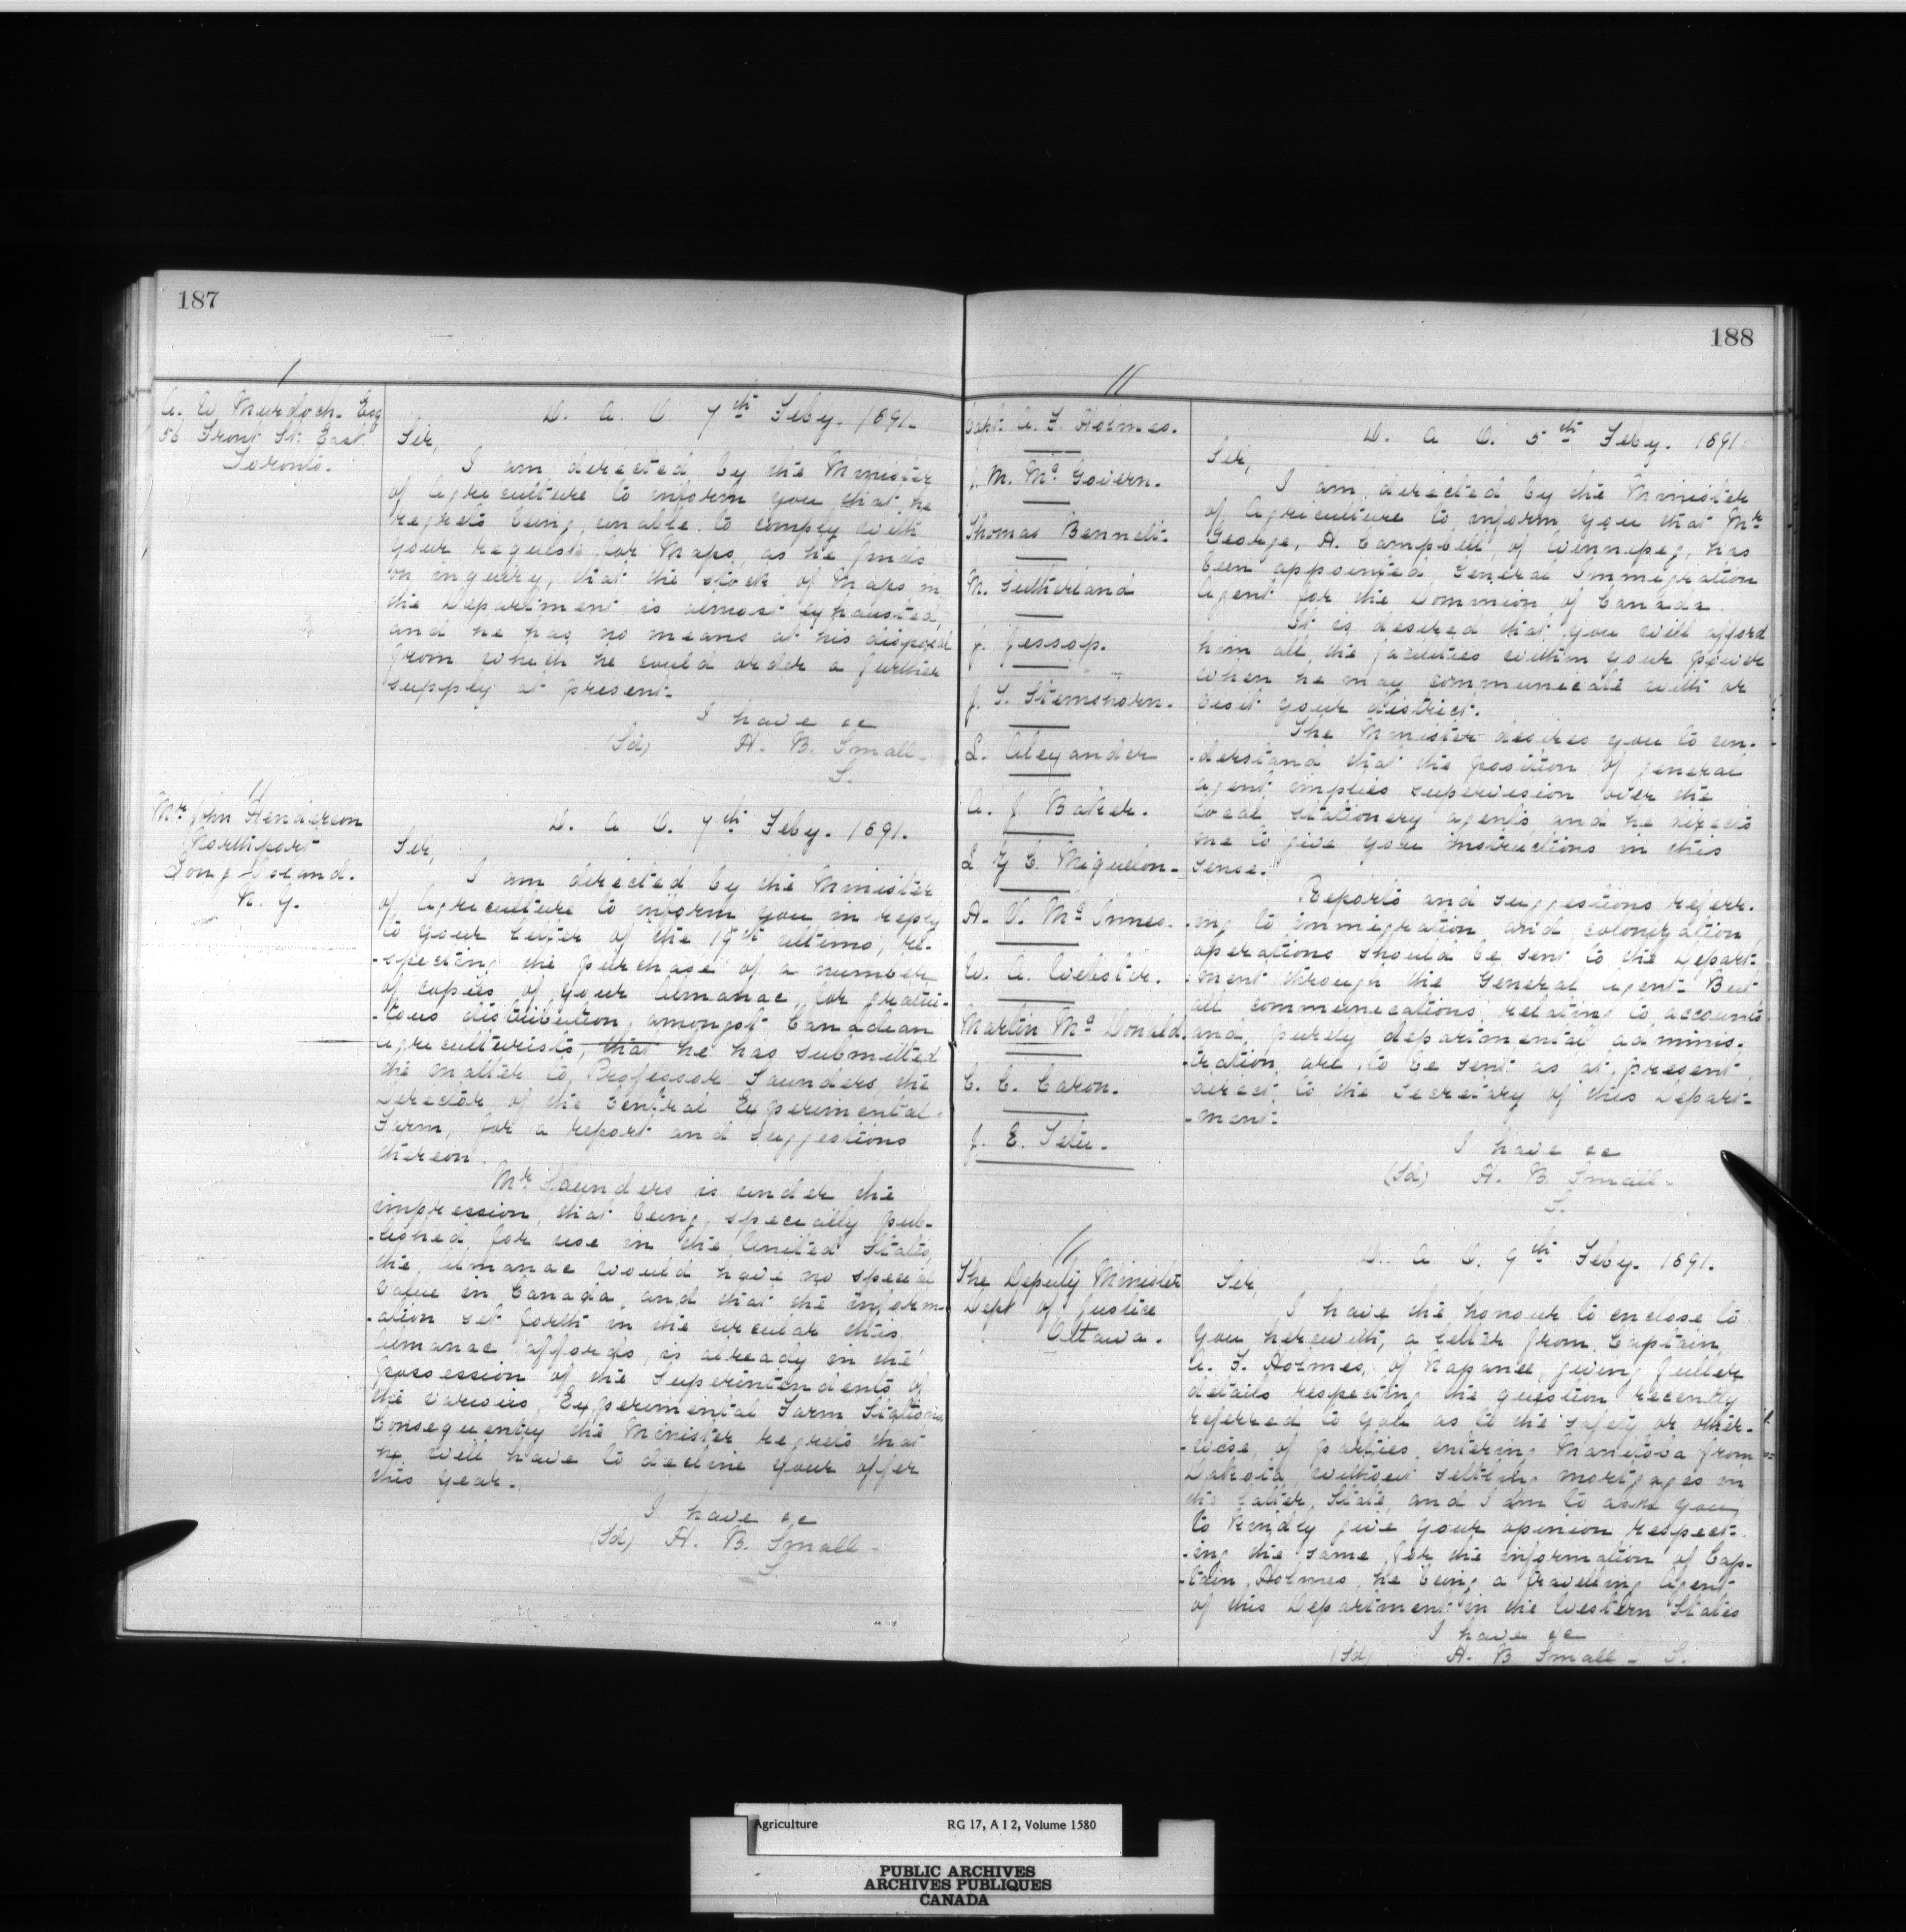 187
A. W. Murdoch. Esq
56 Front St. East
Toronto.
D. A. O. 7th Feby. 1891.
Sir,
I am directed by the Minister
of Agriculture to inform you that he
regrets being unable to comply with
your request for Maps, as he finds
on inquiry, that the stock of Maps in
the Department is almost exhausted,
and he has no means at his disposal
from which he could order a further
supply at present.
I have &c
(Sd) H. B. Small
S.
Mr John Henderson
Northport
Long Island.
N. Y.
D. A. O. 7th Feby. 1891.
Sir,
I am directed by the Minister
of Agriculture to inform you in reply
to your letter of the 19th ultimo, re-
-specting the purchase of a number
of copies of your Almanac, for gratui-
-tous distribution, amongst Canadian
agriculturists, that he has submitted
the matter to, Professor Saunders, the
Director of the Central Experimental
Farm, for a report and suggestions
thereon.
Mr Saunders is under the
impression, that being, specially pub-
-lished for use in the United States,
the, Almanac would have no special
value in Canada, and that the inform-
-ation set forth in the circular this
Almanac affords, is already in the
possession of the Superintendents of
the various, Experimental Farm Stations.
Consequently the Minister regrets that
he will have to decline your offer
this year.
I have &c
(Sd) H. B. Small
S
188
Capt. A. F. Holmes.
J. M. McGovern.
Thomas Bennett.
M. Sutherland
J. Jessop.
J. T. Stemshorn.
L. Alexander
A. J. Baker.
L G C Miquelon
H. V. McInnes.
W. A. Webster.
Martin McDonald.
C. E. Caron.
J. E. Tetu.
D. A. O. 5th Feby. 1891
Sir,
I am directed by the Minister
of Agriculture to inform you that Mr
George, H. Campbell, of Winnipeg, has
been appointed, General Immigration
Agent for the Dominion of Canada.
It is desired that you will afford
him all the facilities within your power
when he may communicate with or
visit your district.
The Minister desires you to un-
-derstand that the position of general
agent implies supervision over the
local stationery agents, and he directs
me to give you instructions in this
sense.
Reports and suggestions referr-
-ing to immigration and colonization
operations should be sent to the Depart-
-ment through the General Agent. But
all communications, relating to accounts
and, purely departmental adminis-
-tration, are to be sent as at present
direct to the Secretary of this Depart-
-ment.
I have &c
(Sd) H. B. Small
S.
The Deputy Minister
Dept of Justice
Ottawa.
D. A. O. 9th Feby. 1891.
Sir,
I have the honour to enclose to
you herewith, a letter from Captain
A. F. Holmes, of Napanee, giving fuller
details respecting the question recently
referred to you as to the safety or other-
-wise, of parties, entering Manitoba from
Dakota, without settling mortgages in
the latter, State, and I am to ask you
to kindly give your opinion respect-
-ing the same for the information of Cap-
-tain, Holmes, he being a travelling Agent
of this Department in the Western States
I have &c
(Sd) H. B Small - S.
Agriculture RG 17, A I 2, Volume 1580
PUBLIC ARCHIVES
ARCHIVES PUBLIQUES
CANADA